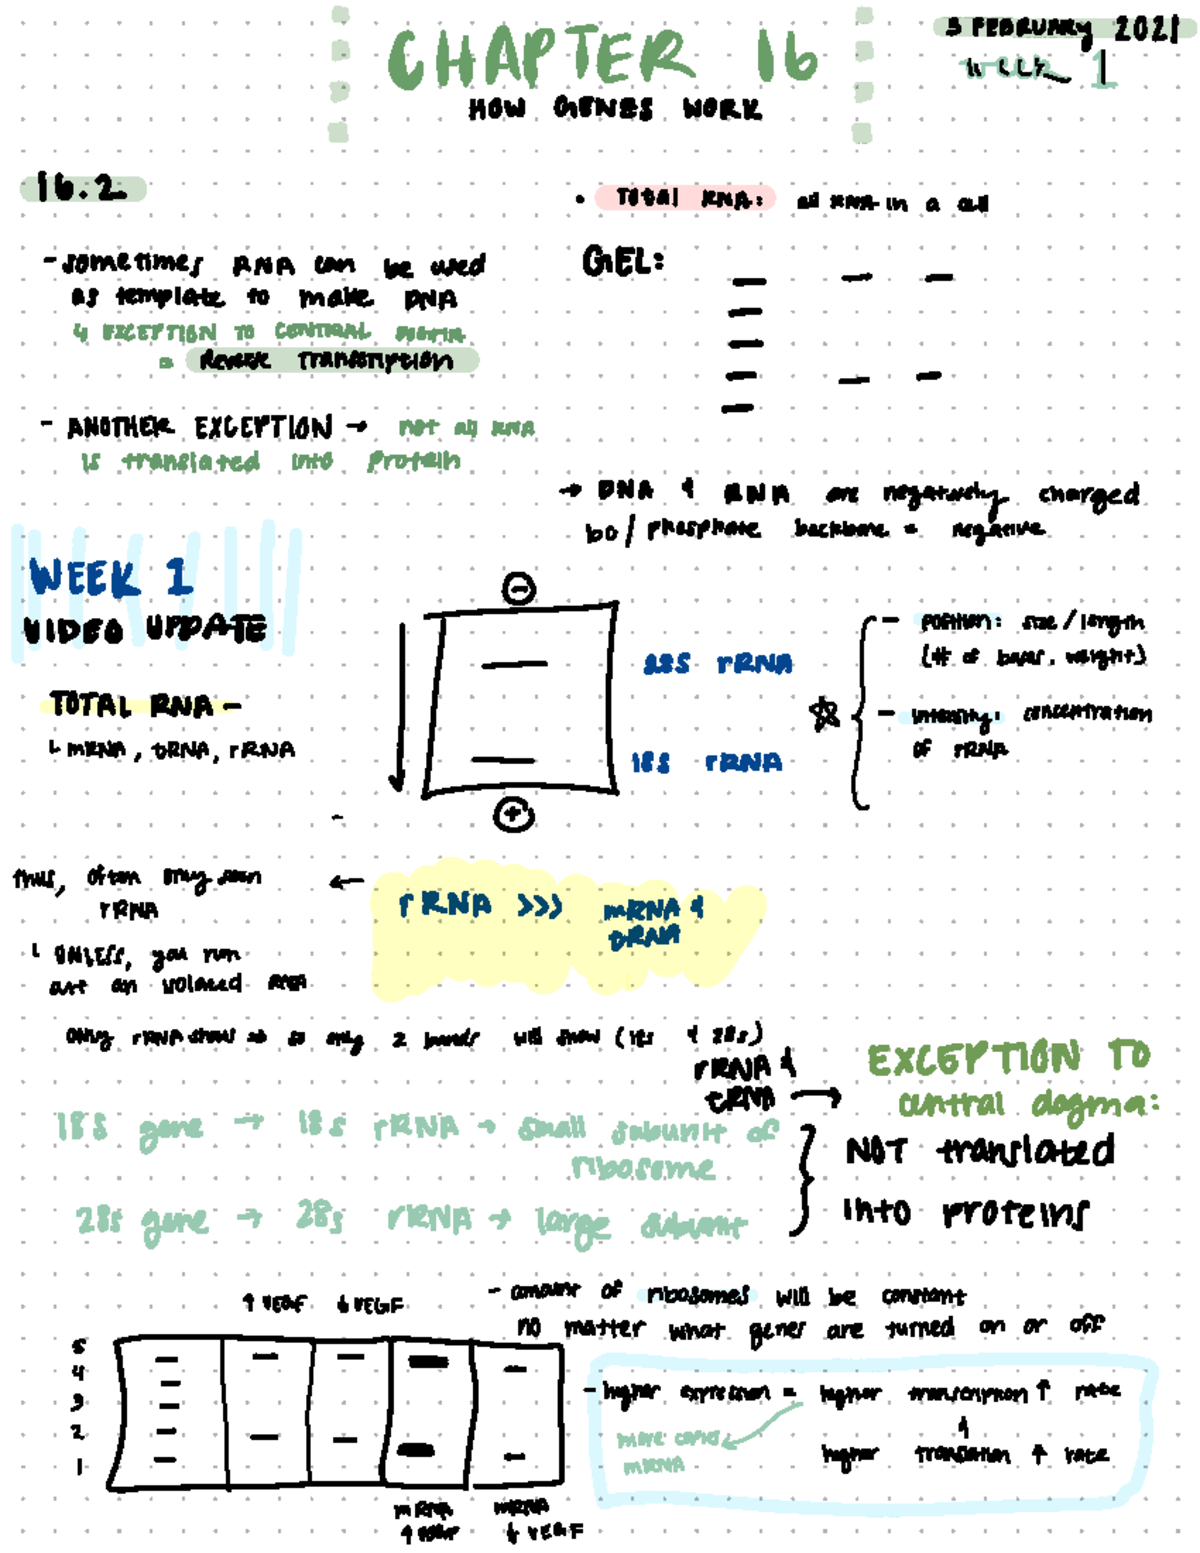 CHAPTER 16
HOW GENES WORK
3 FEBRUARY 2021
WEEK 1
16.2
- sometimes RNA can be used
as template to make DNA
↳ EXCEPTION TO CENTRAL DOGMA
= Reverse Transcription
- ANOTHER EXCEPTION → not all RNA
is translated into protein
• TOTAL RNA: all RNA in a cell
GEL:
→ DNA & RNA are negatively charged
bc/ phosphate backbone = negative
WEEK 1
VIDEO UPDATE
TOTAL RNA -
↳ mRNA, tRNA, rRNA
-
28S rRNA
18S rRNA
+
- position: size/length
(# of bases, weight)
- intensity: concentration
of rRNA
rRNA >>> mRNA &
tRNA
← thus, often only seen
rRNA
↳ UNLESS, you run
an isolated RNA
Only rRNA shows → so only 2 bands will show (18s & 28s)
18S gene → 18s rRNA → small subunit of
ribosome
28s gene → 28s rRNA → large subunit
rRNA &
tRNA →
EXCEPTION TO
central dogma:
NOT translated
into proteins
↑ VEGF ↓ VEGF
5
4
3
2
1
mRNA
↑ VEGF
mRNA
↓ VEGF
- amount of ribosomes will be constant
no matter what genes are turned on or off
- higher expression = higher transcription ↑ rate
&
higher translation ↑ rate
more copies
mRNA